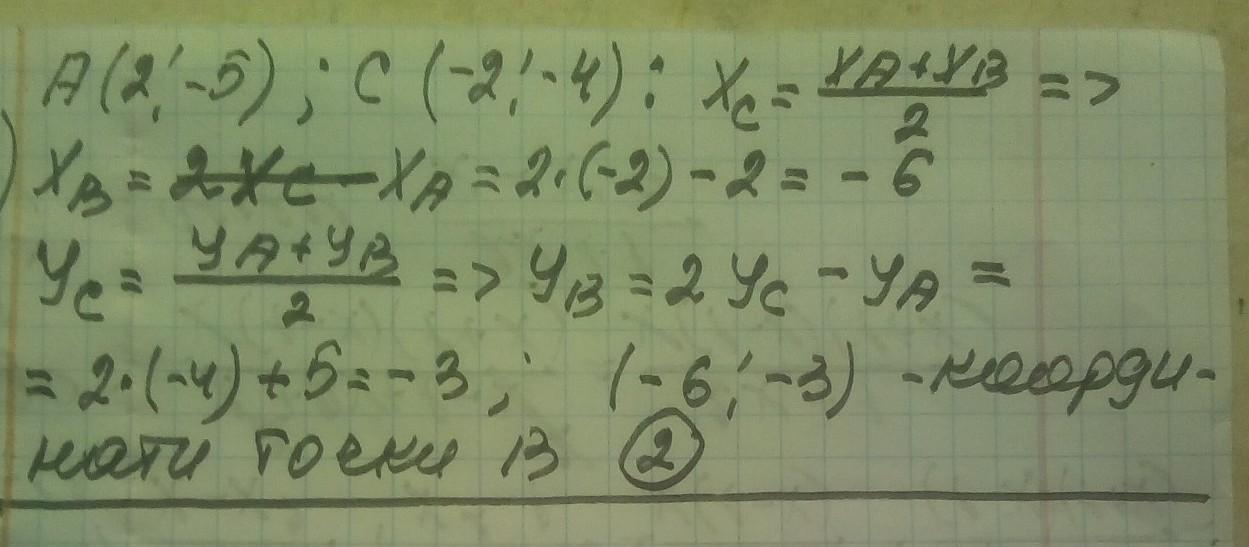 A(2;-5); C(-2;-4): XC = (XA+XB)/2 =>
XB = 2XC - XA = 2·(-2) - 2 = -6
YC = (YA+YB)/2 => YB = 2YC - YA =
= 2·(-4) + 5 = -3; (-6;-3) - коорди-
нати точки B ②